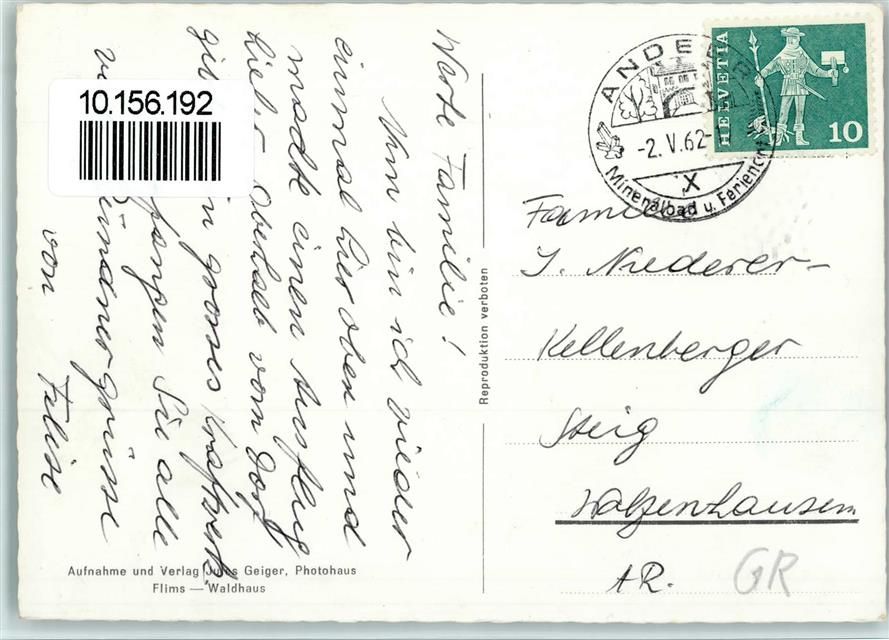 Werte Familie!
Nun bin ich wieder
einmal hier oben und
machte einen Ausflug
hieher oberhalb vom Dorf
gib in grosses Kraftwerk.
fangen Sie alle
ündnergrüsse
von
10.156.192
Aufnahme und Verlag Jules Geiger, Photohaus
Flims — Waldhaus
Reproduktion verboten
ANDE
-2. V. 62-
X
Mineralbad u. Ferienort
HELVETIA
10
Familie
J. Niederer-
Kellenberger
Steig
Walzenhausen
AR.
GR